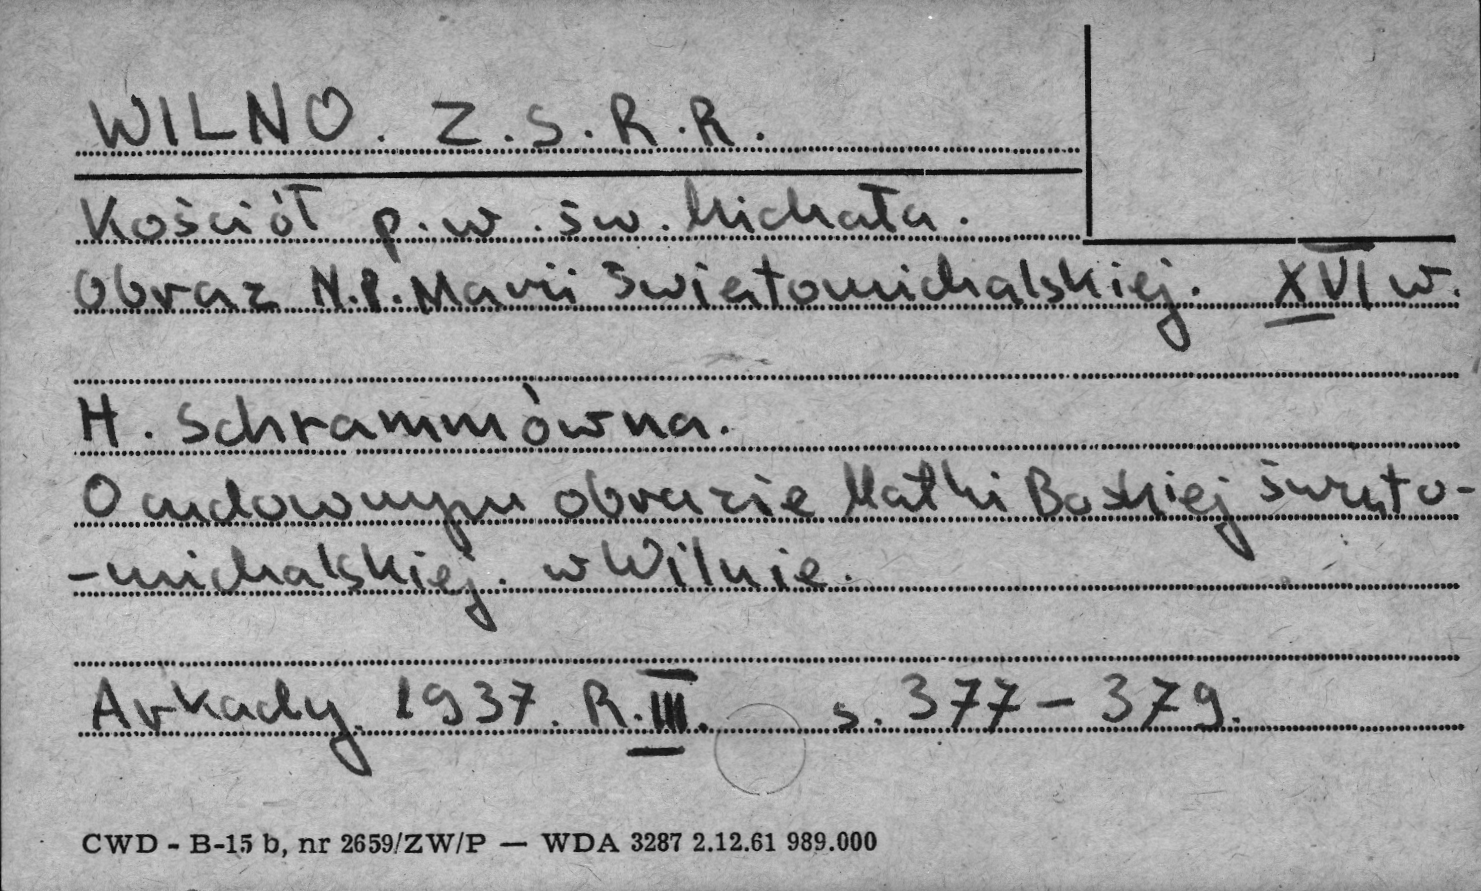 WILNO. Z.S.R.R.
Kościół p.w. św. Michała.
Obraz N.P. Marii Świętomichalskiej. XVI w.
H. Schrammówna.
O cudownym obrazie Matki Boskiej Święto-
-michalskiej. w Wilnie.
Arkady. 1937. R. III. s. 377-379.
CWD - B-15 b, nr 2659/ZW/P — WDA 3287 2.12.61 989.000